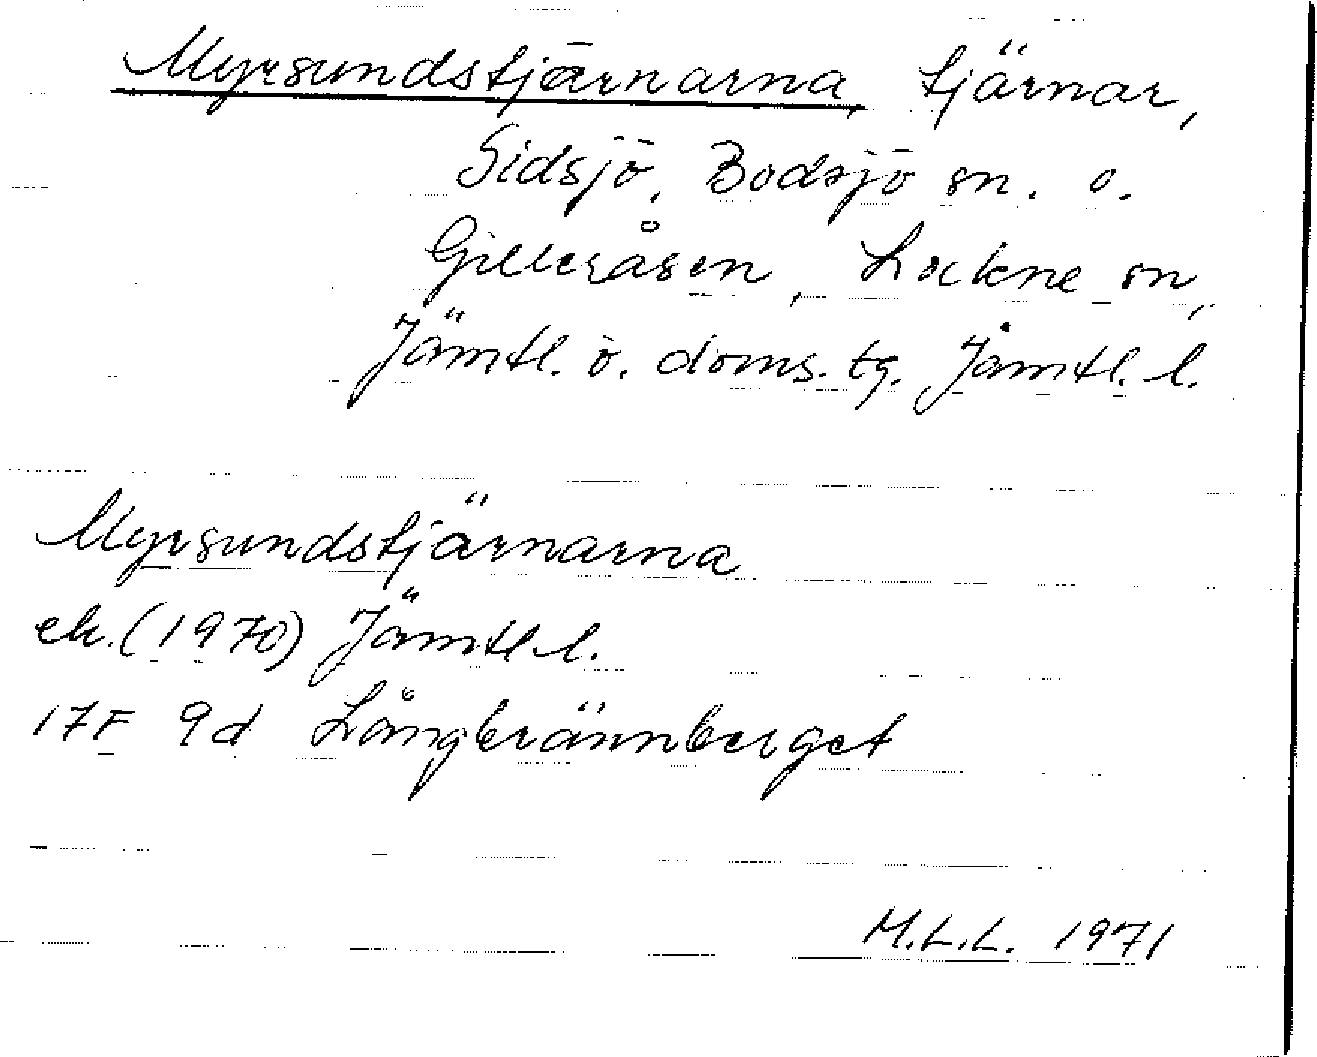 Myrsundstjärnarna, tjärnar,
Sidsjö, Bodsjö sn. o.
Gilleråsen, Lockne sn,
Jämtl. ö. doms. tg. Jämtl. l.
Myrsundstjärnarna
ek. (1970) Jämtl. l.
17F 9d Långbrännberget
M.L.L. 1971